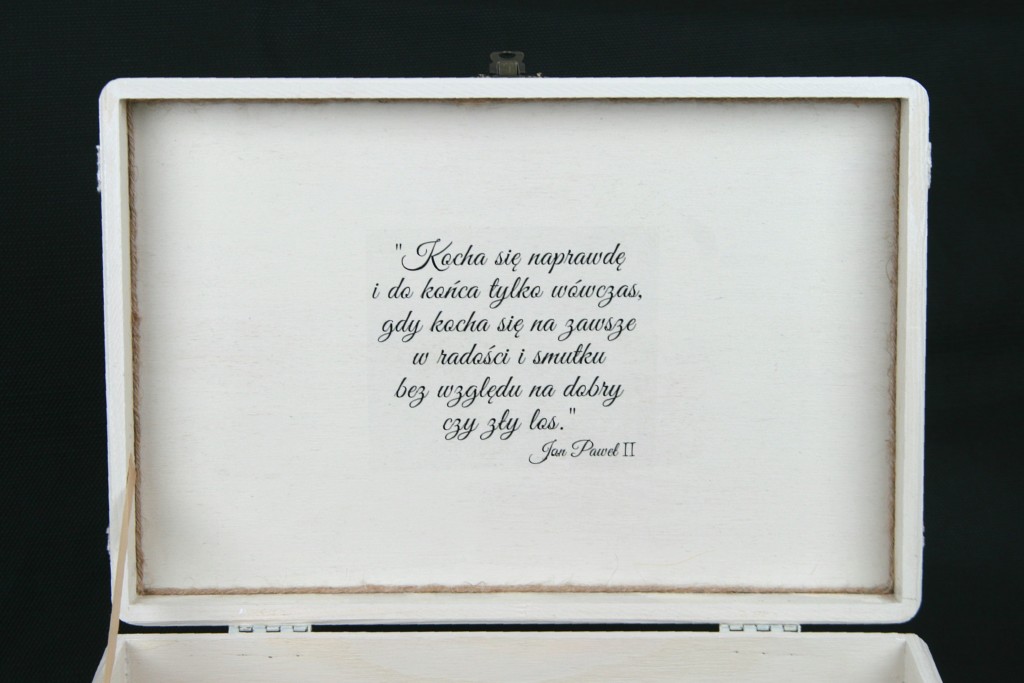 "Kocha się naprawdę
i do końca tylko wówczas,
gdy kocha się na zawsze
w radości i smutku
bez względu na dobry
czy zły los."
Jan Paweł II